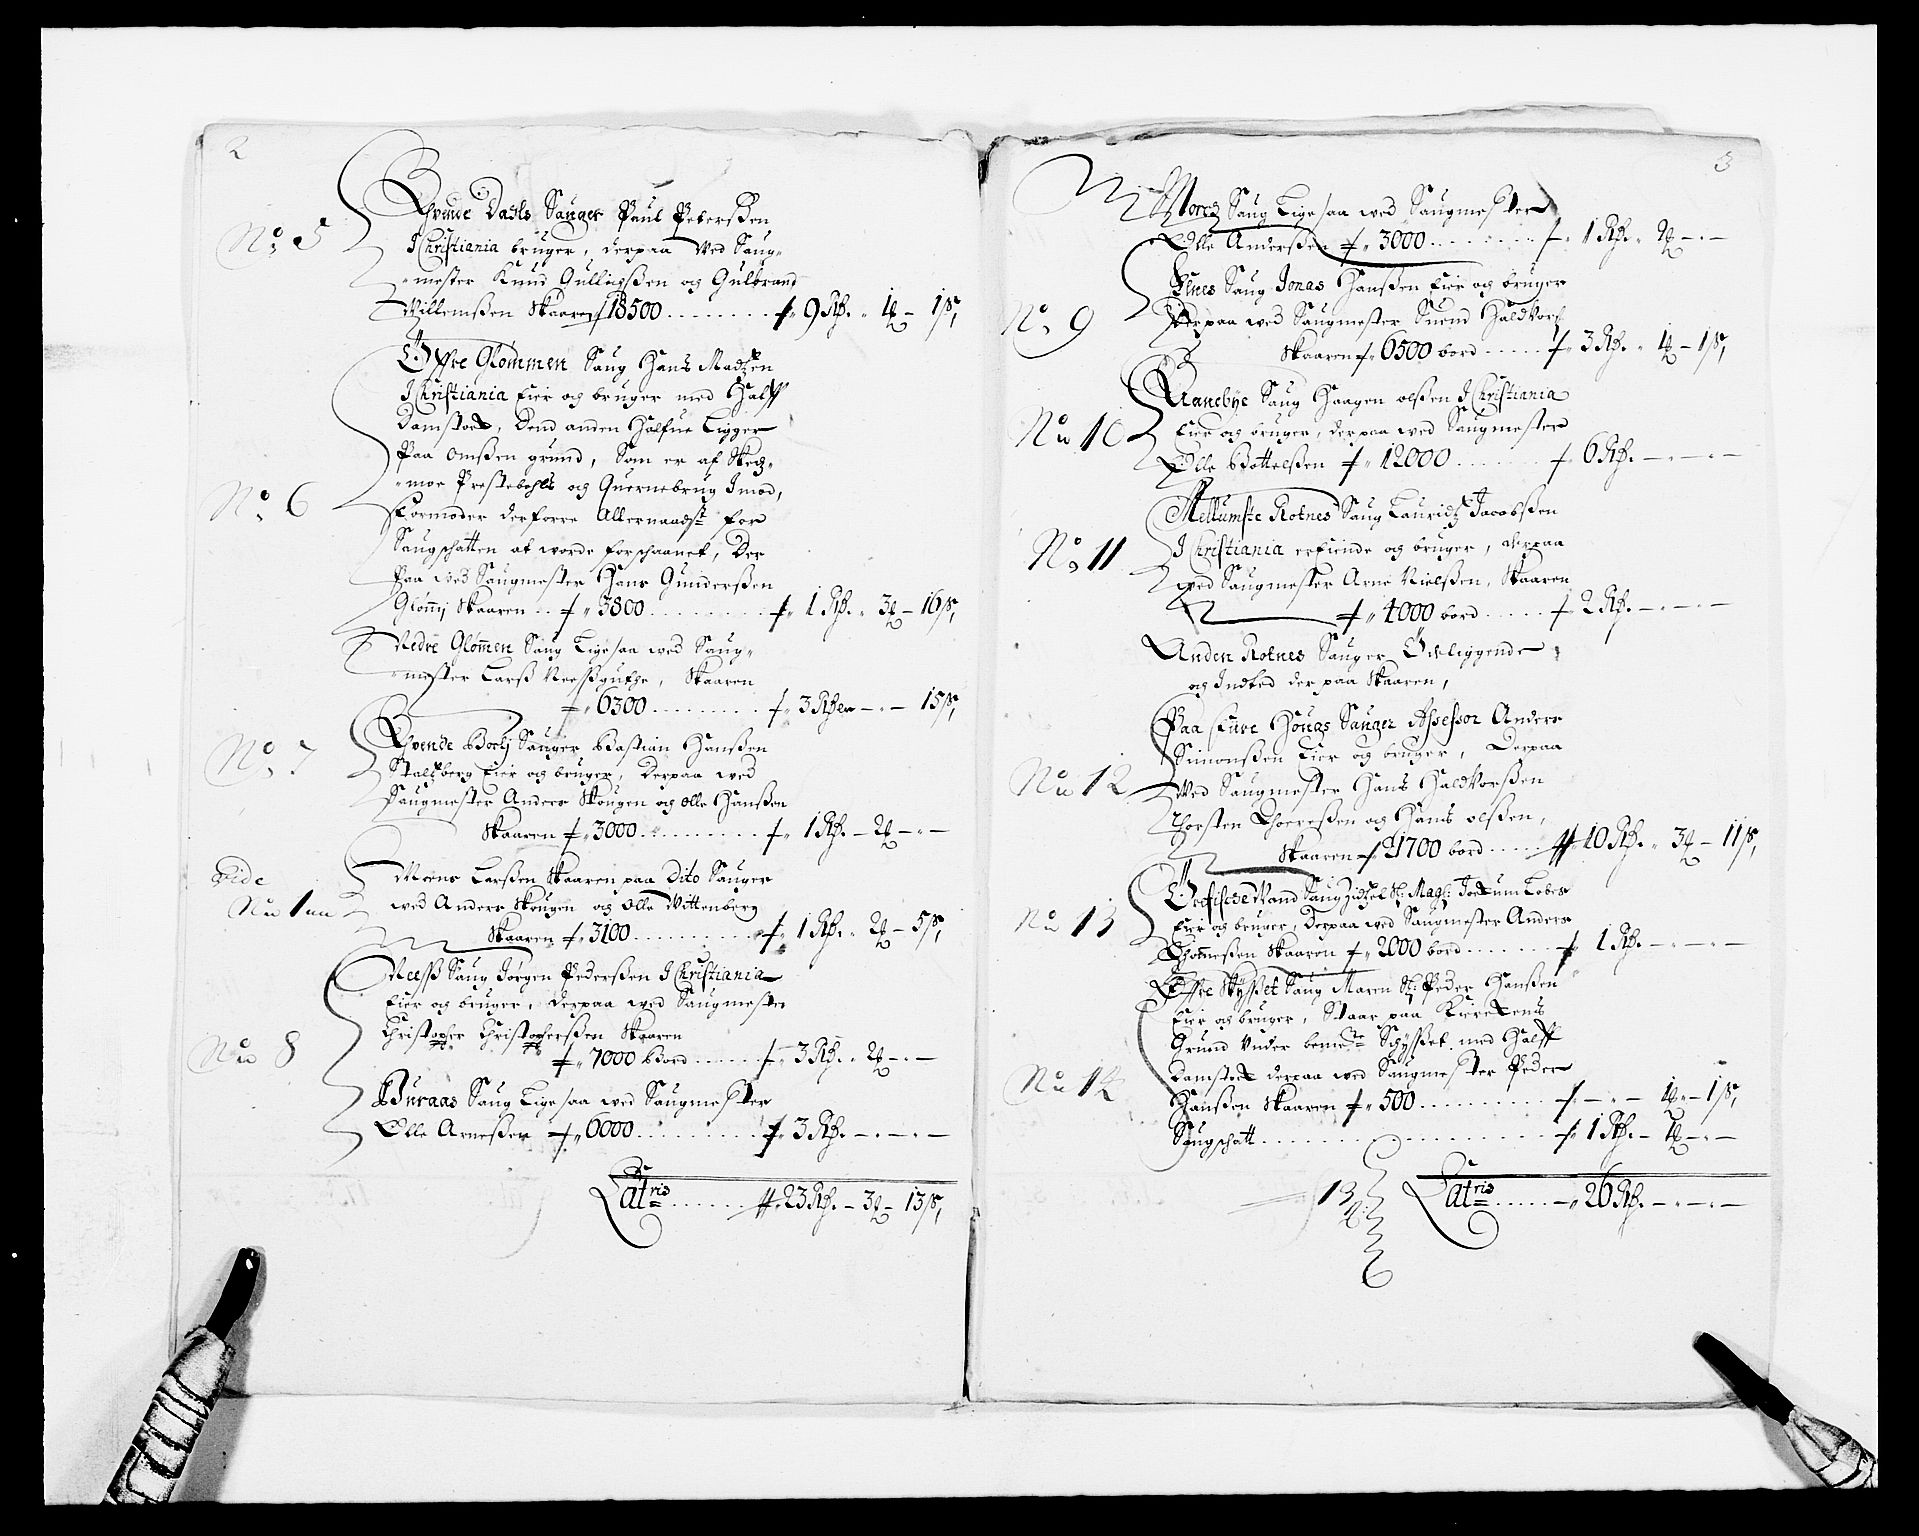 2
No 5
Tvende Dahls Sauger Paul Peterßen
I Christiania bruger, derpaa Ved Saug-
mester Knud Gulligßen og Gulbrand
Willemßen Skaaren 18500 . . . 9 Rh. 1 - 1 ß,
No 6
Øffre Glommen Saug Hans Madtzen
I Christiania Eier og bruger med Halff
Damstok, Dend anden Halfue Ligger
Paa omßen grund, Som er af Skeds-
moe Prestebohls og Quernebrug Imod,
Formoder derforre Allernaadst for
Saugschatten at worde forschaanet, Der
Paa wed Saugmester Hans Gunderßen
Glomj Skaaren 3800 . . . 1 Rh. 3 - 16 ß,
Nedre Glommen Saug Ligesaa wed Saug-
mester Larß, Skaaren
6300 . . . 3 Rher - - - 15 ß,
No 7
Tvende Sauger Bastian Hanßen
Stalzberg Eier og bruger, Derpaa wed
Saugmester Anders Skougen og Olle Hanßen
Skaaren 3000 . . . 1 Rh. - 2 - - -
Vide
No 1
Mons Larßen Skaaren paa Dito Sauger
wed Anders Skougen og Olle Wittenberg
Skaaren 3100 . . . 1 Rh. 2 - 5 ß,
No 8
Neesß Saug Jørgen Pederßen I Christiania
Eier og bruger, Derpaa wed Saugmester
Christopher Christopherßen Skaaren
7000 Bord . . . 3 Rh. 2 - - -
Buraas Saug Ligesaa wed Saugmester
Olle Arneßen 6000 . . . 3 Rh. - - - -
Latris . . . 23 Rh. - 3 - 13 ß,
3
Saug Ligesaa wed Saugmester
Olle Anderßen 3000 . . . 1 Rh. 2 - - -
No 9
Saug Jonas Hanßen Eier og bruger
Derpaa wed Saugmester Suend Haldvorß
Skaaren 6500 bord . . . 3 Rh. 1 - 1 ß,
No 10
Raanebye Saug Haagen olßen I Christiania
Eier og bruger, derpaa wed Saugmester
Olle Bottelßen 12000 . . . 6 Rh. - - - -
No 11
Mellumste Rotnes Saug Lauridtz Jacobßen
I Christiania erfiende og bruger, derpaa
wed Saugmester Arne Nielßen, Skaaren
4000 bord . . . 2 Rh. - - - -
Anden Rotnes Sauger Ødeliggende
og Inted derpaa Skaaren,
No 12
Paa Høugs Sauger Assessor Anders
Simonßen Eier og bruger, Derpaa
Wed Saugmester Hans Haldvorßen
Thorsten og Hans olßen,
Skaaren 21700 bord . . . 10 Rh. 3 - 11 ß,
No 13
Saug Magr: Jockum Lobes
Eier og bruger, Derpaa wed Saugmester Anders
Skaaren 2000 bord . . . 1 Rh. - - - -
No 14
Øffre Skysset Saug Maren Sl: Peder Hanßen
Eier og bruger, Staar paa
Grund Under bemte Schysset med Halff
Damstok derpaa wed Saugmester Peder
Hanßen Skaaren 500 . . . - - 1 - 1 ß,
Saugschatt . . . 1 Rh. - 1 - - -
13
Latris . . . 26 Rh. - - - -